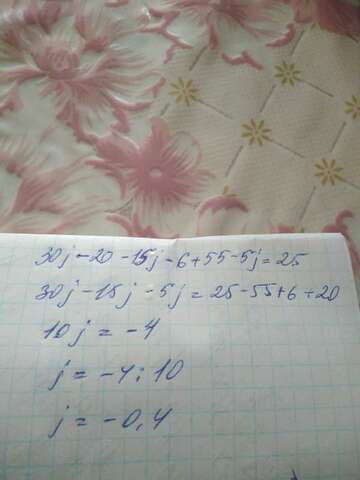 30j-20-15j-6+55-5j=25
30j-15j-5j=25-55+6+20
10j=-4
j=-4:10
j=-0,4